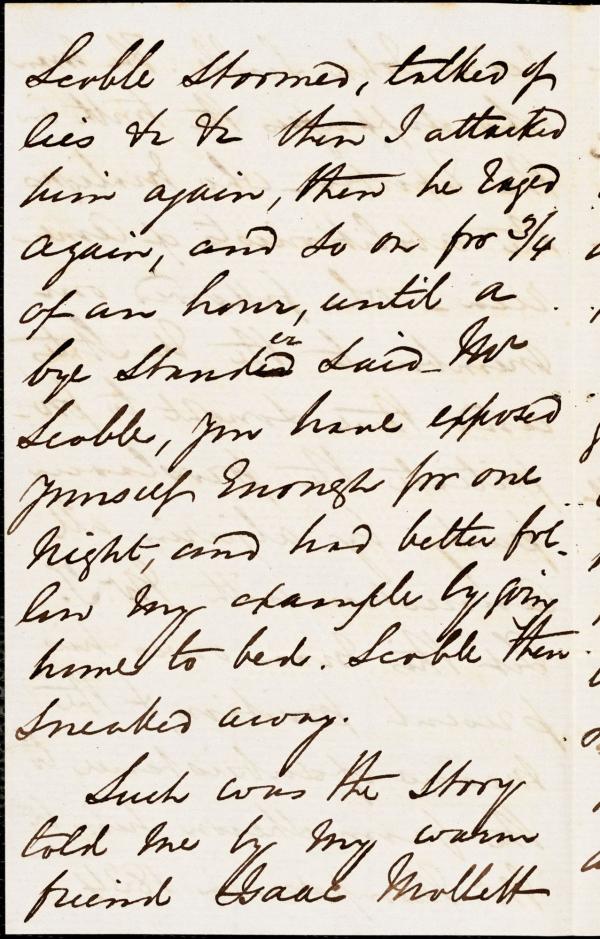 Scoble stormed, talked of
lies &c &c then I attacked
him again, then he raged
again, and so on for 3/4
of an hour, until a
bye stander said - Mr
Scoble, you have exposed
yourself enough for one
night, and had better fol-
low my example by going
home to bed. Scoble then
sneaked away.
Such was the story
told me by my warm
friend Isaac Mollett